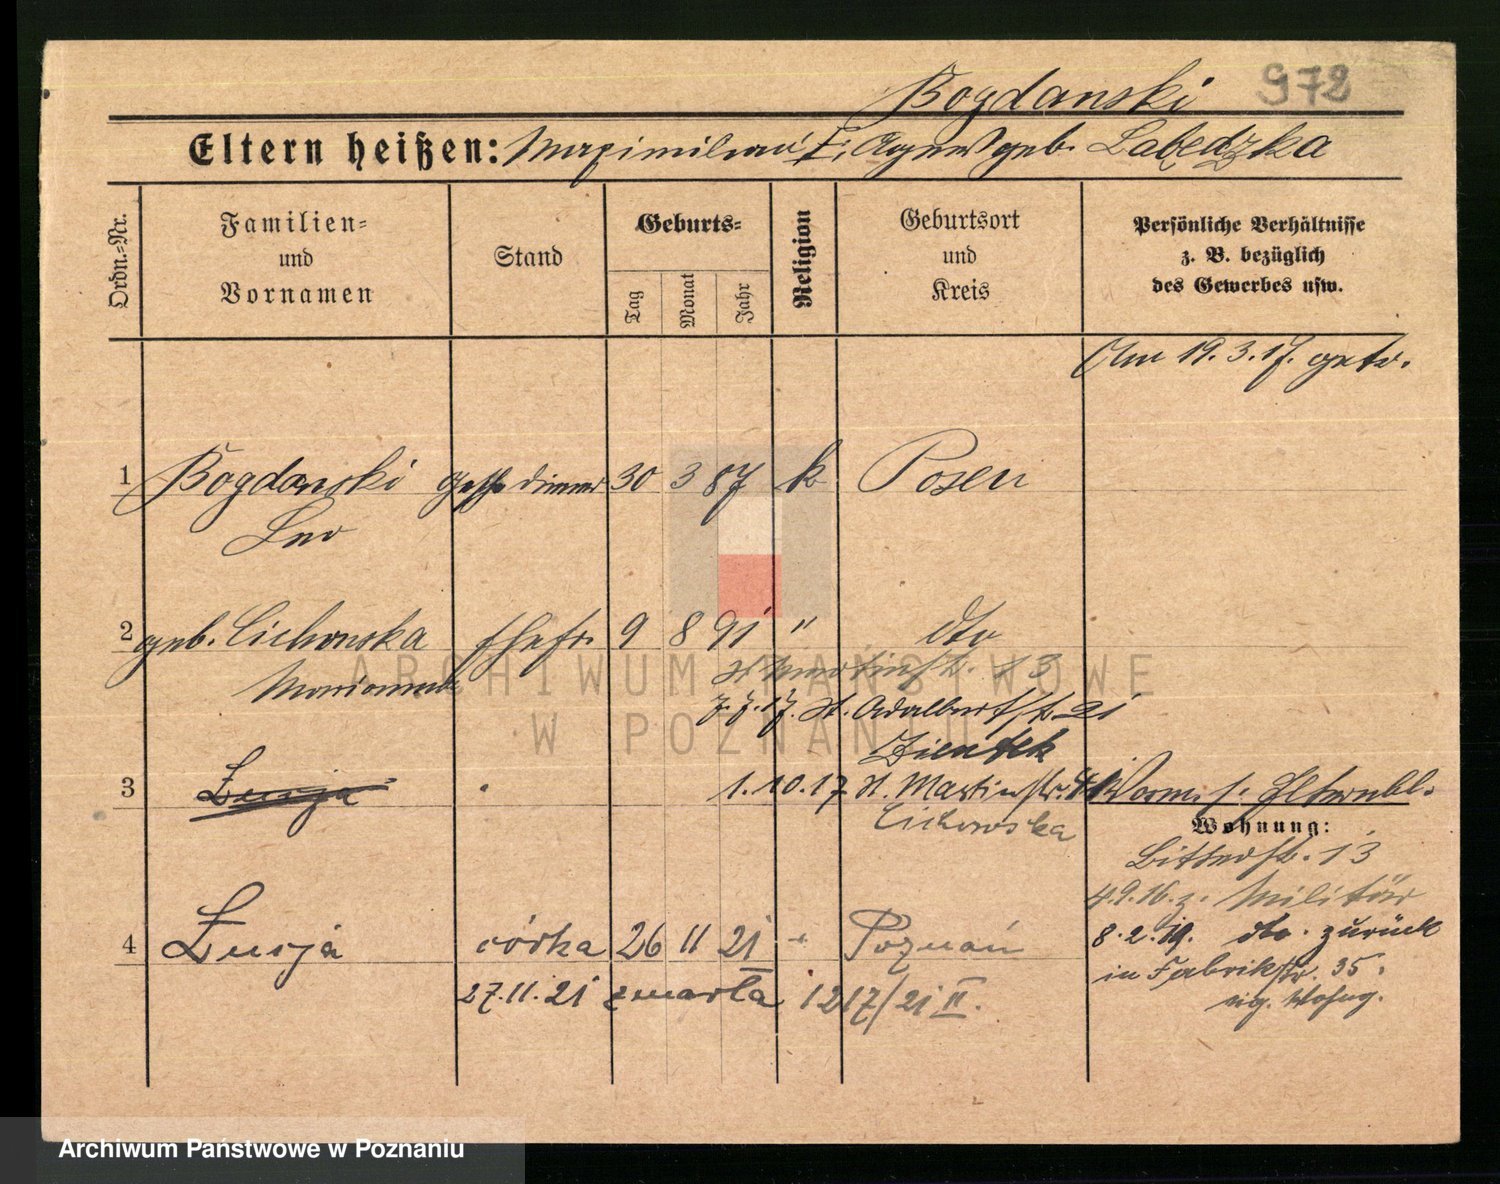 Bogdanski 972
Eltern heißen: Maximilian u. Agnes geb. Łabędzka
Ordn.-Nr.
Familien- und Vornamen
Stand
Geburts-
Tag
Monat
Jahr
Religion
Geburtsort und Kreis
Persönliche Verhältnisse
z. B. bezüglich
des Gewerbes usw.
Am 19. 3. 17. getr.
1 Bogdanski 30 3 87 k Posen
Leo
2 geb. Cichowska Ehefr. 9 8 91 " dto
Marianna
St Martinstr. 23
7.7.17. St. Adalbertstr. 21
Zientek
3 Łucja 1.10.17 St. Martinstr. Worm. s. Elternbl.
Cichowska
Wohnung:
Bitterstr. 13
4.9.16. z. Militär
4 Łucja córka 26 11 21 Poznań
8.2.19. dto. zurück
in Fabrikstr. 35.
eig. Wohng.
27.11.21 zmarła 1217/21 II.
ARCHIWUM PAŃSTWOWE
W POZNANIU
Archiwum Państwowe w Poznaniu